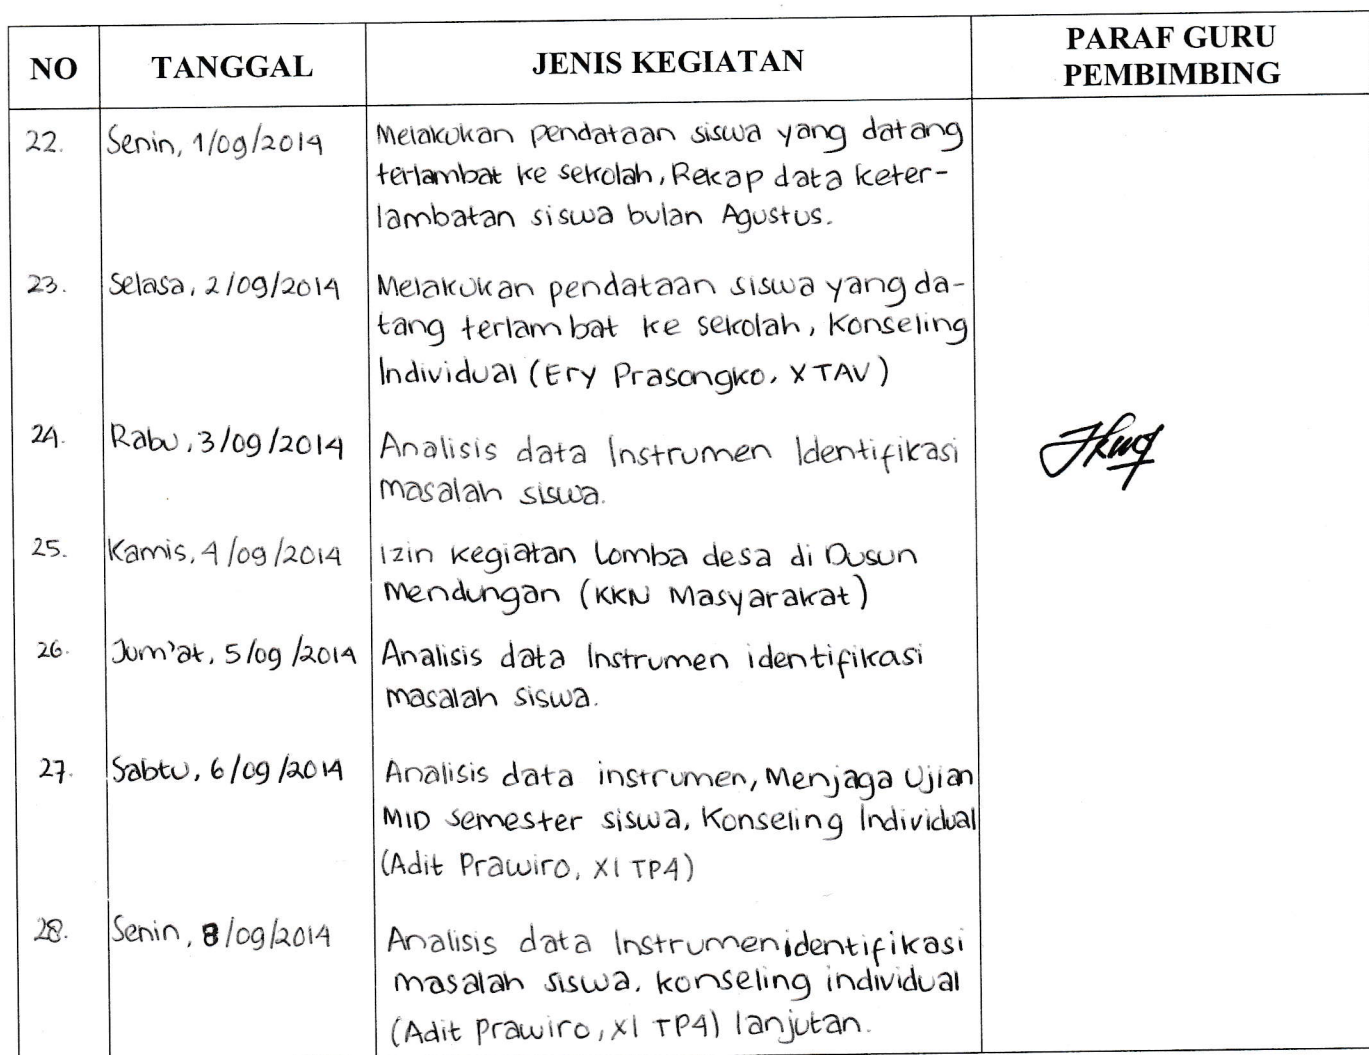 NO TANGGAL JENIS KEGIATAN PARAF GURU
PEMBIMBING
22. Senin, 1/09/2014 Melakukan pendataan siswa yang datang
terlambat ke sekolah, Rekap data keter-
lambatan siswa bulan Agustus.
23. Selasa, 2/09/2014 Melakukan pendataan siswa yang da-
tang terlambat ke sekolah, Konseling
Individual (Ery Prasongko, X TAV)
24. Rabu, 3/09/2014 Analisis data Instrumen Identifikasi
masalah siswa.
25. Kamis, 4/09/2014 Izin kegiatan Lomba desa di Dusun
Mendungan (KKN Masyarakat)
26. Jum'at, 5/09/2014 Analisis data Instrumen identifikasi
masalah siswa.
27. Sabtu, 6/09/2014 Analisis data instrumen, Menjaga Ujian
MID semester siswa, Konseling Individual
(Adit Prawiro, XI TP4)
28. Senin, 8/09/2014 Analisis data Instrumen identifikasi
masalah siswa, konseling individual
(Adit Prawiro, XI TP4) lanjutan.